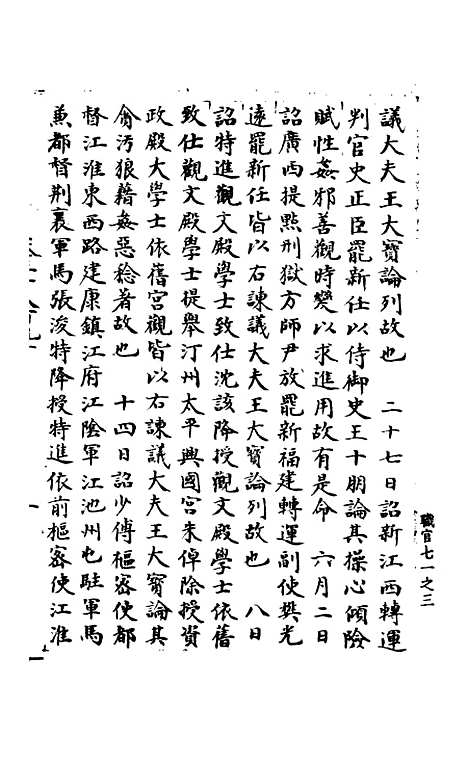 議大夫王大寶論列故也　二十七日詔新江西轉運
判官史正臣罷新任以侍御史王十朋論其操心傾險
賦性姦邪善觀時變以求進用故有是命　六月二日
詔廣西提點刑獄方師尹放罷新福建轉運副使樊光
遠罷新任皆以右諫議大夫王大寶論列故也　八日
詔特進觀文殿學士致仕沈該降授觀文殿學士依舊
致仕觀文殿學士提舉江州太平興國宮朱倬除授資
政殿大學士依舊宮觀皆以右諫議大夫王大寶論其
貪污狼藉姦惡稔著故也　十四日詔少傅樞密使都
督江淮東西路建康鎮江府江陰軍江池州屯駐軍馬
兼都督荆襄軍馬張浚特降授特進依前樞密使江淮
職官七一之三